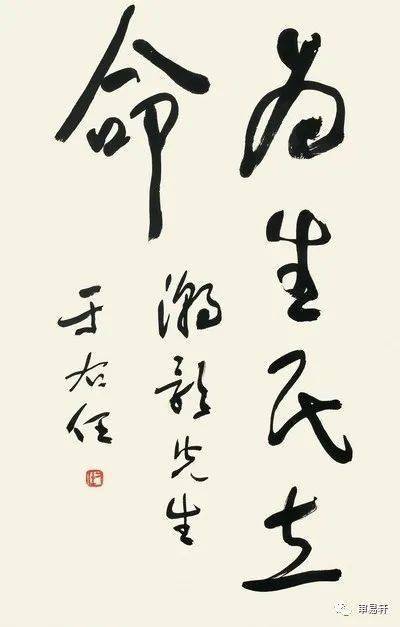 為生民立
命
先生
于右任
易轩